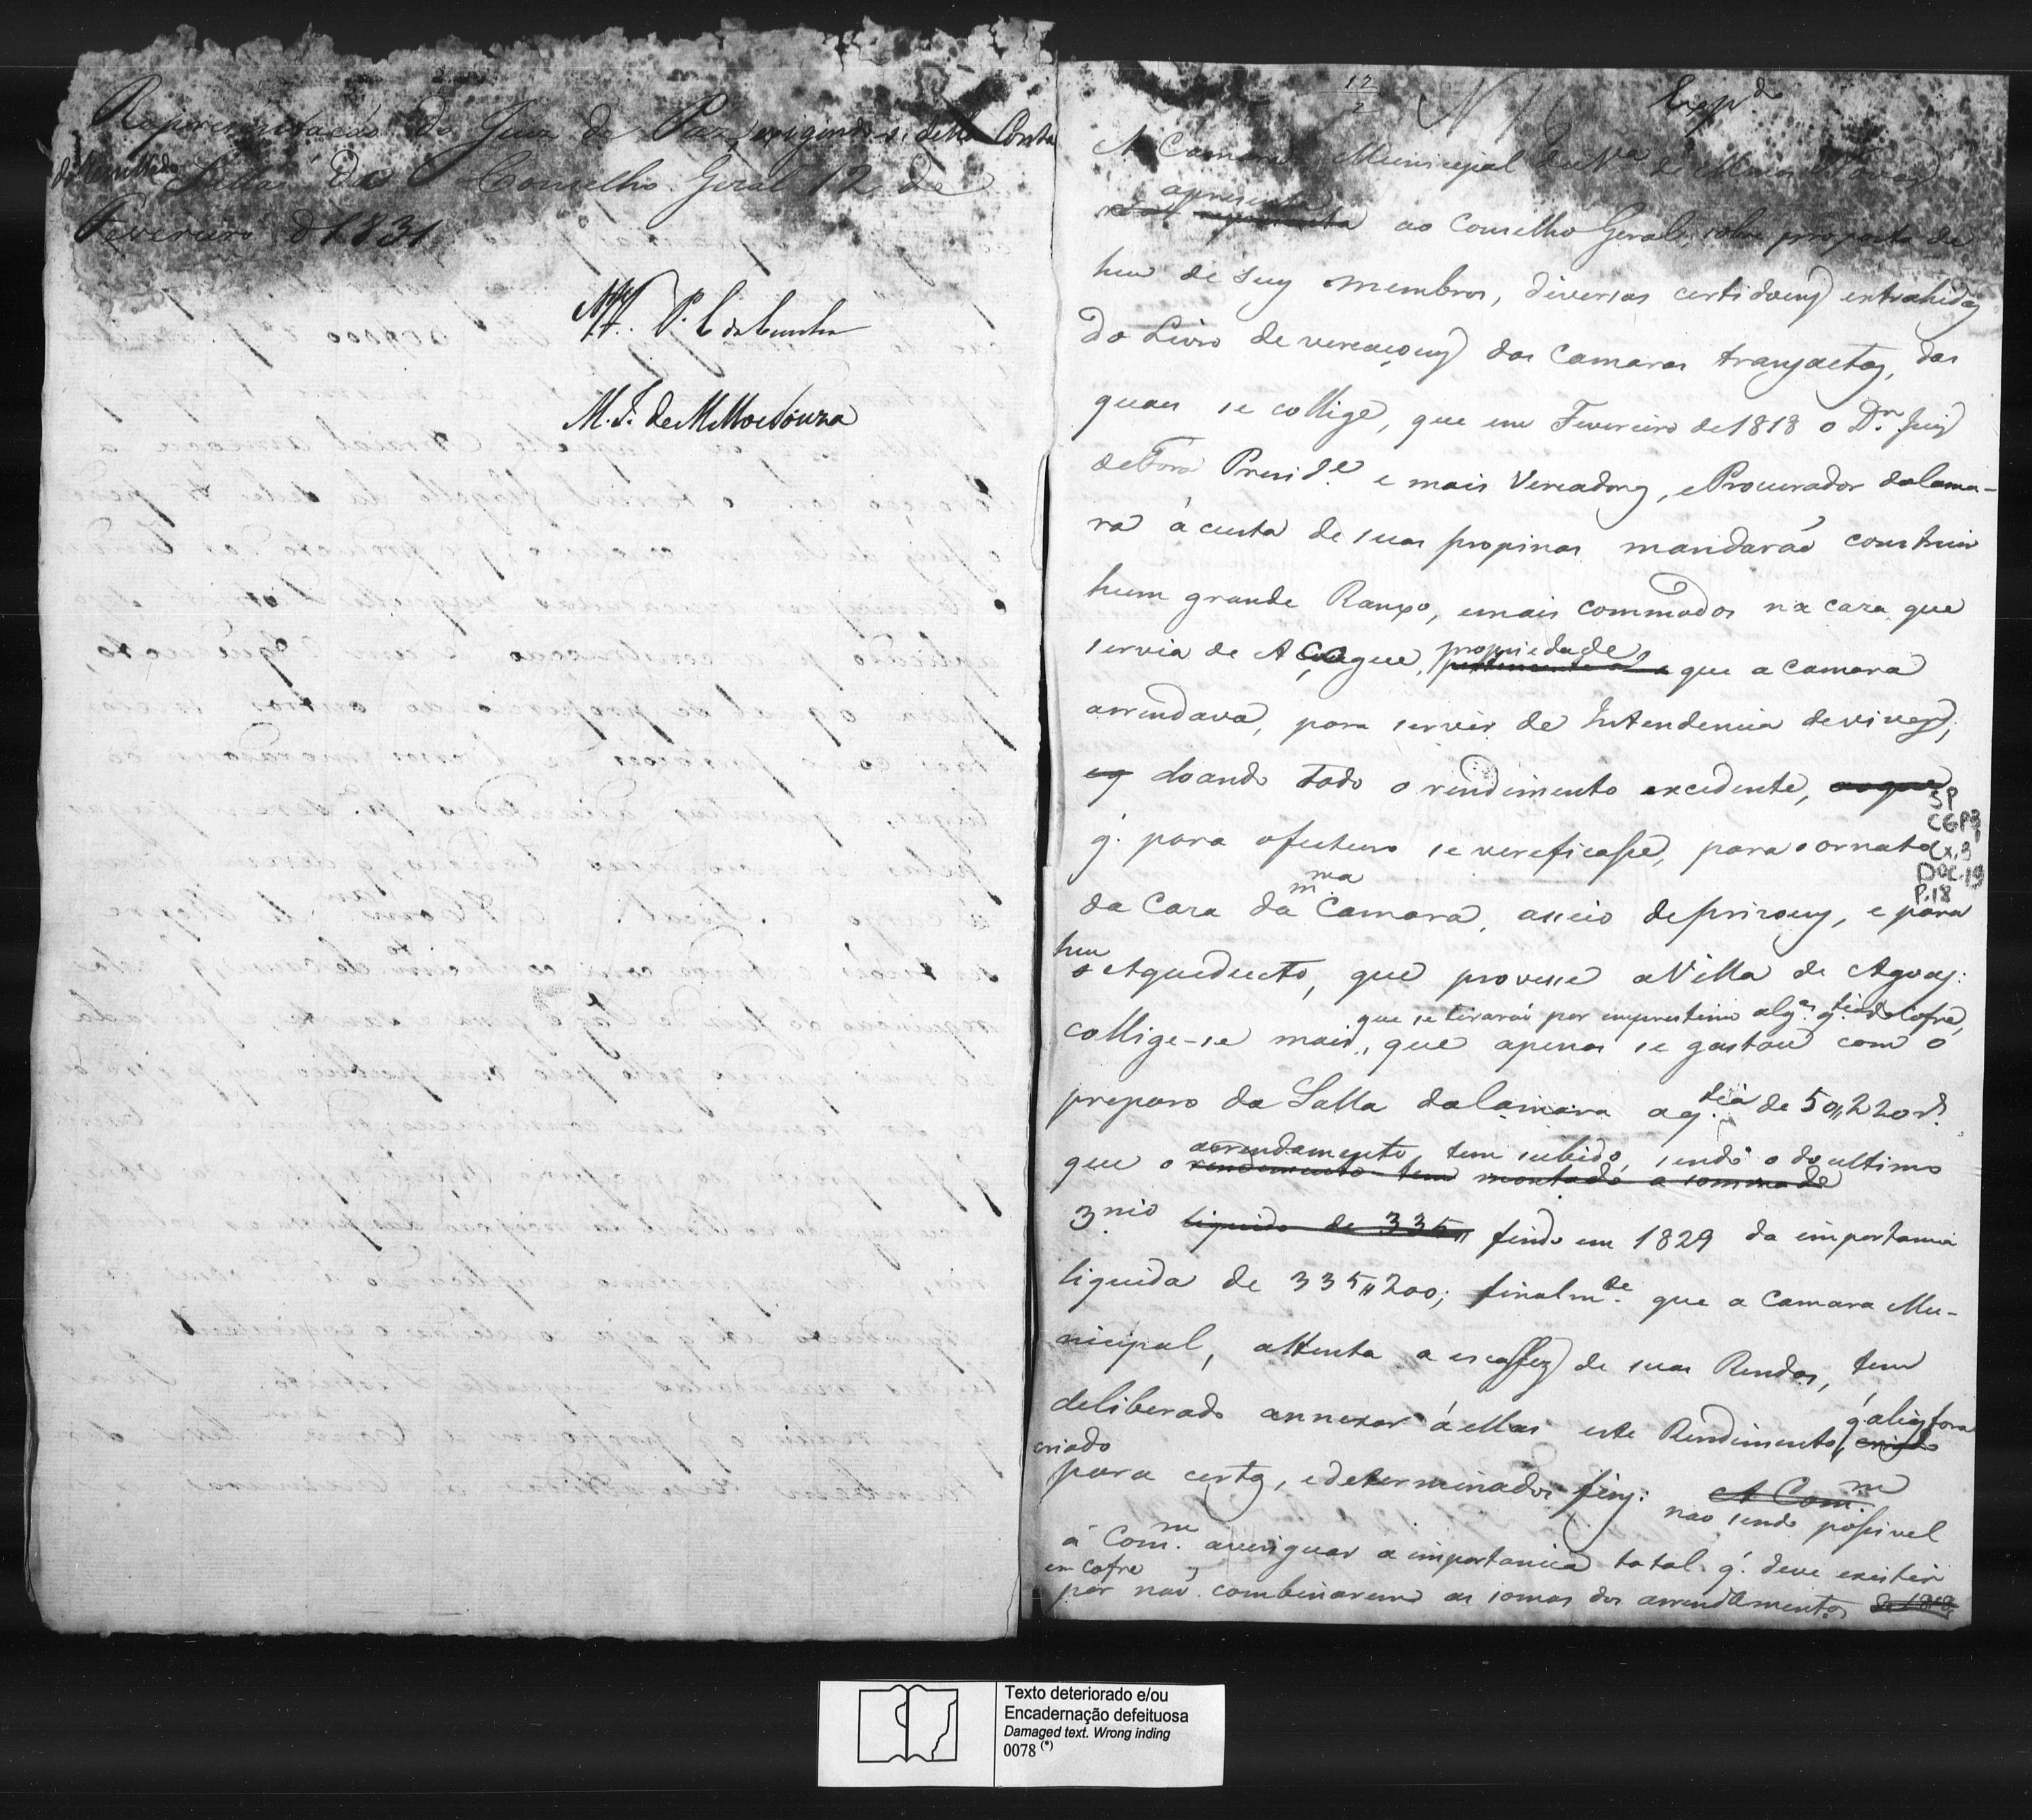 Representação do Juiz de Paz, exigindo-se delle Conta
do
Salla do Conselho Geral 12 de
Fevereiro d 1831
P. C. da Cunha
M. J. de Mello e Souza
12
2
N
Exp.do
A Camara Municipal da V.a de
apresenta
ao Conselho Geral, sobre proposta de
hum de seus membros, diversas certidoens extrahidas
do Livro de vereaçoens das Camaras transactas, das
quaes se collige, que em Fevereiro de 1818 o D.r Juiz
de Fora Presid.e e mais Vereadores, e Procurador da Cama-
ra á custa de suas propinas mandarão construir
hum grande Rancho, e mais commodos na caza que
servia de Açougue, propriedade que a Camara
arrendava, para servir de Intendencia de viveres,
doando todo o rendimento excedente,
q. para o futuro se verificasse, para o ornato
da Caza da m.ma Camara, asseio de prizoens, e para
hum Aqueducto, que provesse a Villa de Agoas:
que se tirarão por emprestimo alg.as q.tias do Cofre,
collige-se mais, que apenas se gastou com o
preparo da Salla da Camara a q.tia de 50,,220 r.s
que o arrendamento tem subido, sendo o do ultimo
rendimento tem montado a somma de
3.nio liquido de 335,, findo em 1829 da importancia
liquida de 335,,200; finalm.te que a Camara Mu-
nicipal, attenta a escassez de suas Rendas, tem
deliberado annexar á ellas este Rendimento, q. aliás fora
criado
para certos, e determinados fins: A Com.m não sendo possivel
á Com.m averiguar a importancia total q. deve existir
em cofre
por não combinarem as somas dos arrendamentos de 1818
SP
CGP3
Cx.3
DOC.19
P.18
Texto deteriorado e/ou
Encadernação defeituosa
Damaged text. Wrong inding
0078 (*)